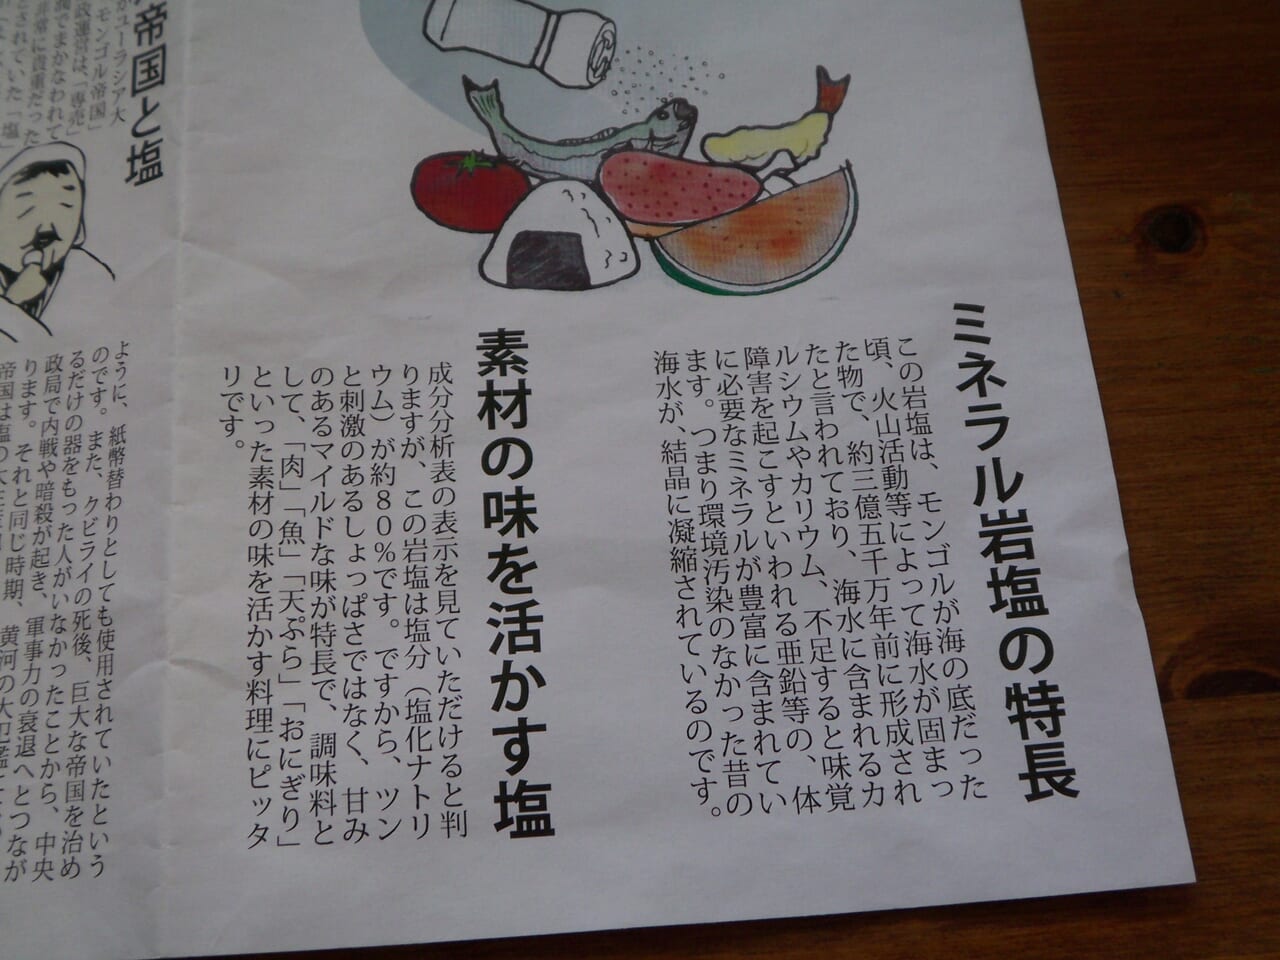 ミネラル岩塩の特長
この岩塩は、モンゴルが海の底だった
頃、火山活動等によって海水が固まっ
た物で、約三億五千万年前に形成され
たと言われており、海水に含まれるカ
ルシウムやカリウム、不足すると味覚
障害を起こすといわれる亜鉛等の、体
に必要なミネラルが豊富に含まれてい
ます。つまり環境汚染のなかった昔の
海水が、結晶に凝縮されているのです。
素材の味を活かす塩
成分分析表の表示を見ていただけると判
りますが、この岩塩は塩分（塩化ナトリ
ウム）が約80％です。ですから、ツン
と刺激のあるしょっぱさではなく、甘み
のあるマイルドな味が特長で、調味料と
して、「肉」「魚」「天ぷら」「おにぎり」
といった素材の味を活かす料理にピッタ
リです。
帝国と塩
がユーラシア大
モンゴル帝国」
政運営は、「専売」
でまかなわれて
非常に貴重だった
とされていた「塩」
ように、紙幣替わりとしても使用されていたという
のです。また、クビライの死後、巨大な帝国を治め
るだけの器をもった人がいなかったことから、中央
政局で内戦や暗殺が起き、軍事力の衰退へとつなが
ります。それと同じ時期、黄河の大氾濫
帝国は塩の大